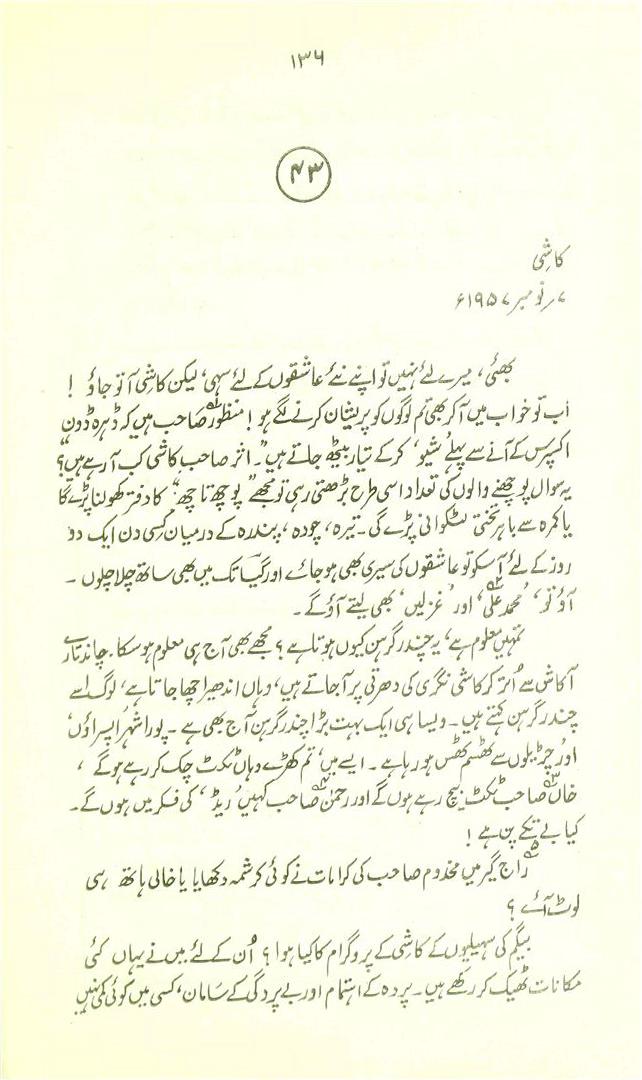 ۱۳۶
۴۳
کاشی
۷؍نومبر ۱۹۵۷ء
بھئی، میرے لئے نہیں تو اپنے نئے عاشقوں کے لئے سہی، لیکن کاشی آ تو جاؤ !
اب تو خواب میں آکر بھی تم لوگوں کو پریشان کرنے لگے ہو! منظور صاحب ہیں کہ ڈہرہ ڈون
اکسپرس کے آنے سے پہلے ’شیو‘ کرکے تیار بیٹھ جاتے ہیں۔ "اثر صاحب کاشی کب آرہے ہیں؟"
یہ سوال پوچھنے والوں کی تعداد اسی طرح بڑھتی رہی تو مجھے "پوچھ تاچھ" کا دفتر کھولنا پڑے گا
یا کمرہ سے باہر تختی لٹکوانی پڑے گی۔ تیرہ، چودہ، پندرہ کے درمیان کسی دن ایک دو
روز کے لئے آسکو تو عاشقوں کی سیری بھی ہو جائے اور گیا تک میں بھی ساتھ چلا چلوں۔
آؤ تو، ’محمد علی‘ اور ’غزلیں‘ بھی لیتے آؤ گے۔
تمہیں معلوم ہے، یہ چندر گرہن کیوں ہوتا ہے؟ مجھے بھی آج ہی معلوم ہو سکا۔ چاند تارے
آکاش سے اُتر کر کاشی نگری کی دھرتی پر آجاتے ہیں، وہاں اندھیرا چھا جاتا ہے، لوگ اسے
چندر گرہن کہتے ہیں۔ ویسا ہی ایک بہت بڑا چندر گرہن آج بھی ہے۔ پورا شہر اپسراؤں
اور چڑیلوں سے کھٹم کھٹس ہو رہا ہے۔ ایسے میں، تم کھڑے وہاں ٹکٹ چک کر رہے ہوگے،
خاں صاحب ٹکٹ بیچ رہے ہوں گے اور رحمٰن صاحب کہیں ’ریڈ‘ کی فکر میں ہوں گے۔
کیا بے تکے پن ہے !
راج گیر میں مخدوم صاحب کی کرامات نے کوئی کرشمہ دکھایا یا خالی ہاتھ ہی
لوٹ آئے ؟
بیگم کی سہیلیوں کے کاشی کے پروگرام کا کیا ہوا ؟ اُن کے لئے میں نے یہاں کئی
مکانات ٹھیک کر رکھے ہیں۔ پردہ کے اہتمام اور بے پردگی کے سامان، کسی میں کوئی کمی نہیں